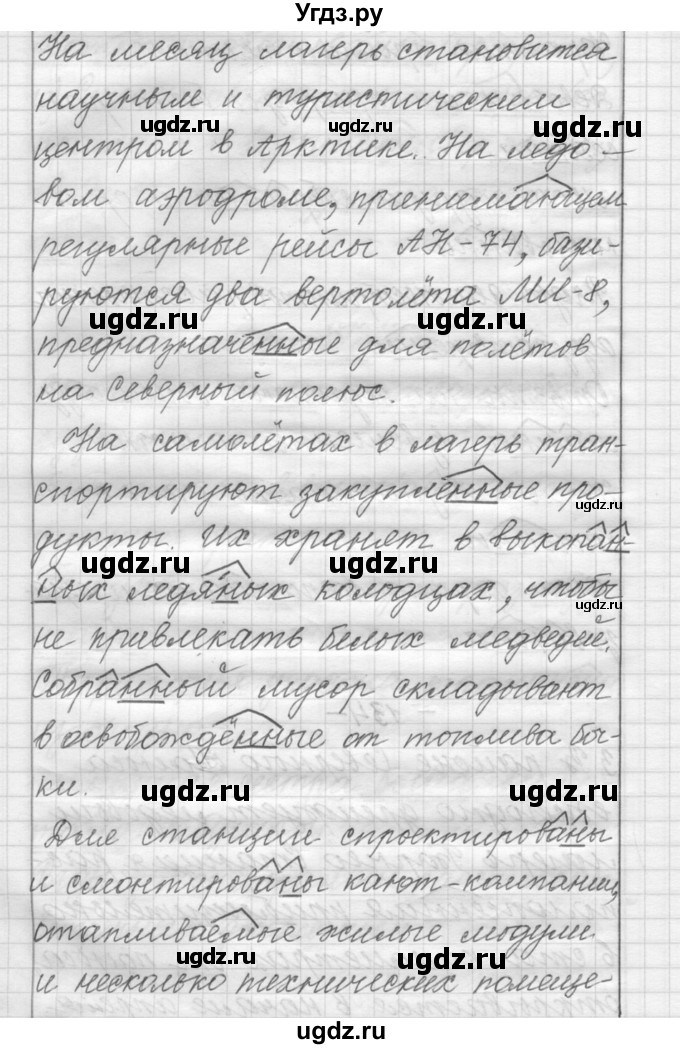 Угдз.ру
На месяц лагерь становится
научным и туристическим
ugdz.ru ugdz.ru ugdz.ru
центром в Арктике. На ледо-
вом аэродроме, принимающем
регулярные рейсы АН-74, бази-
руются два вертолёта МИ-8,
ugdz.ru ugdz.ru
предназначенные для полётов
на Северный полюс.
На самолётах в лагерь тран-
спортируют закупленные про-
ugdz.ru
дукты. Их хранят в выкопан-
ugdz.ru ugdz.ru
ных ледяных колодцах, чтобы
ugdz.ru
не привлекать белых медведей.
Собранный мусор складывают
в освобождённые от топлива бо-
ки.
ugdz.ru ugdz.ru
Для станции спроектированы
и смонтированы кают-компании,
отапливаемые жилые модули
ugdz.ru ugdz.ru ugdz.ru
и несколько технических помеще-
ugdz.ru